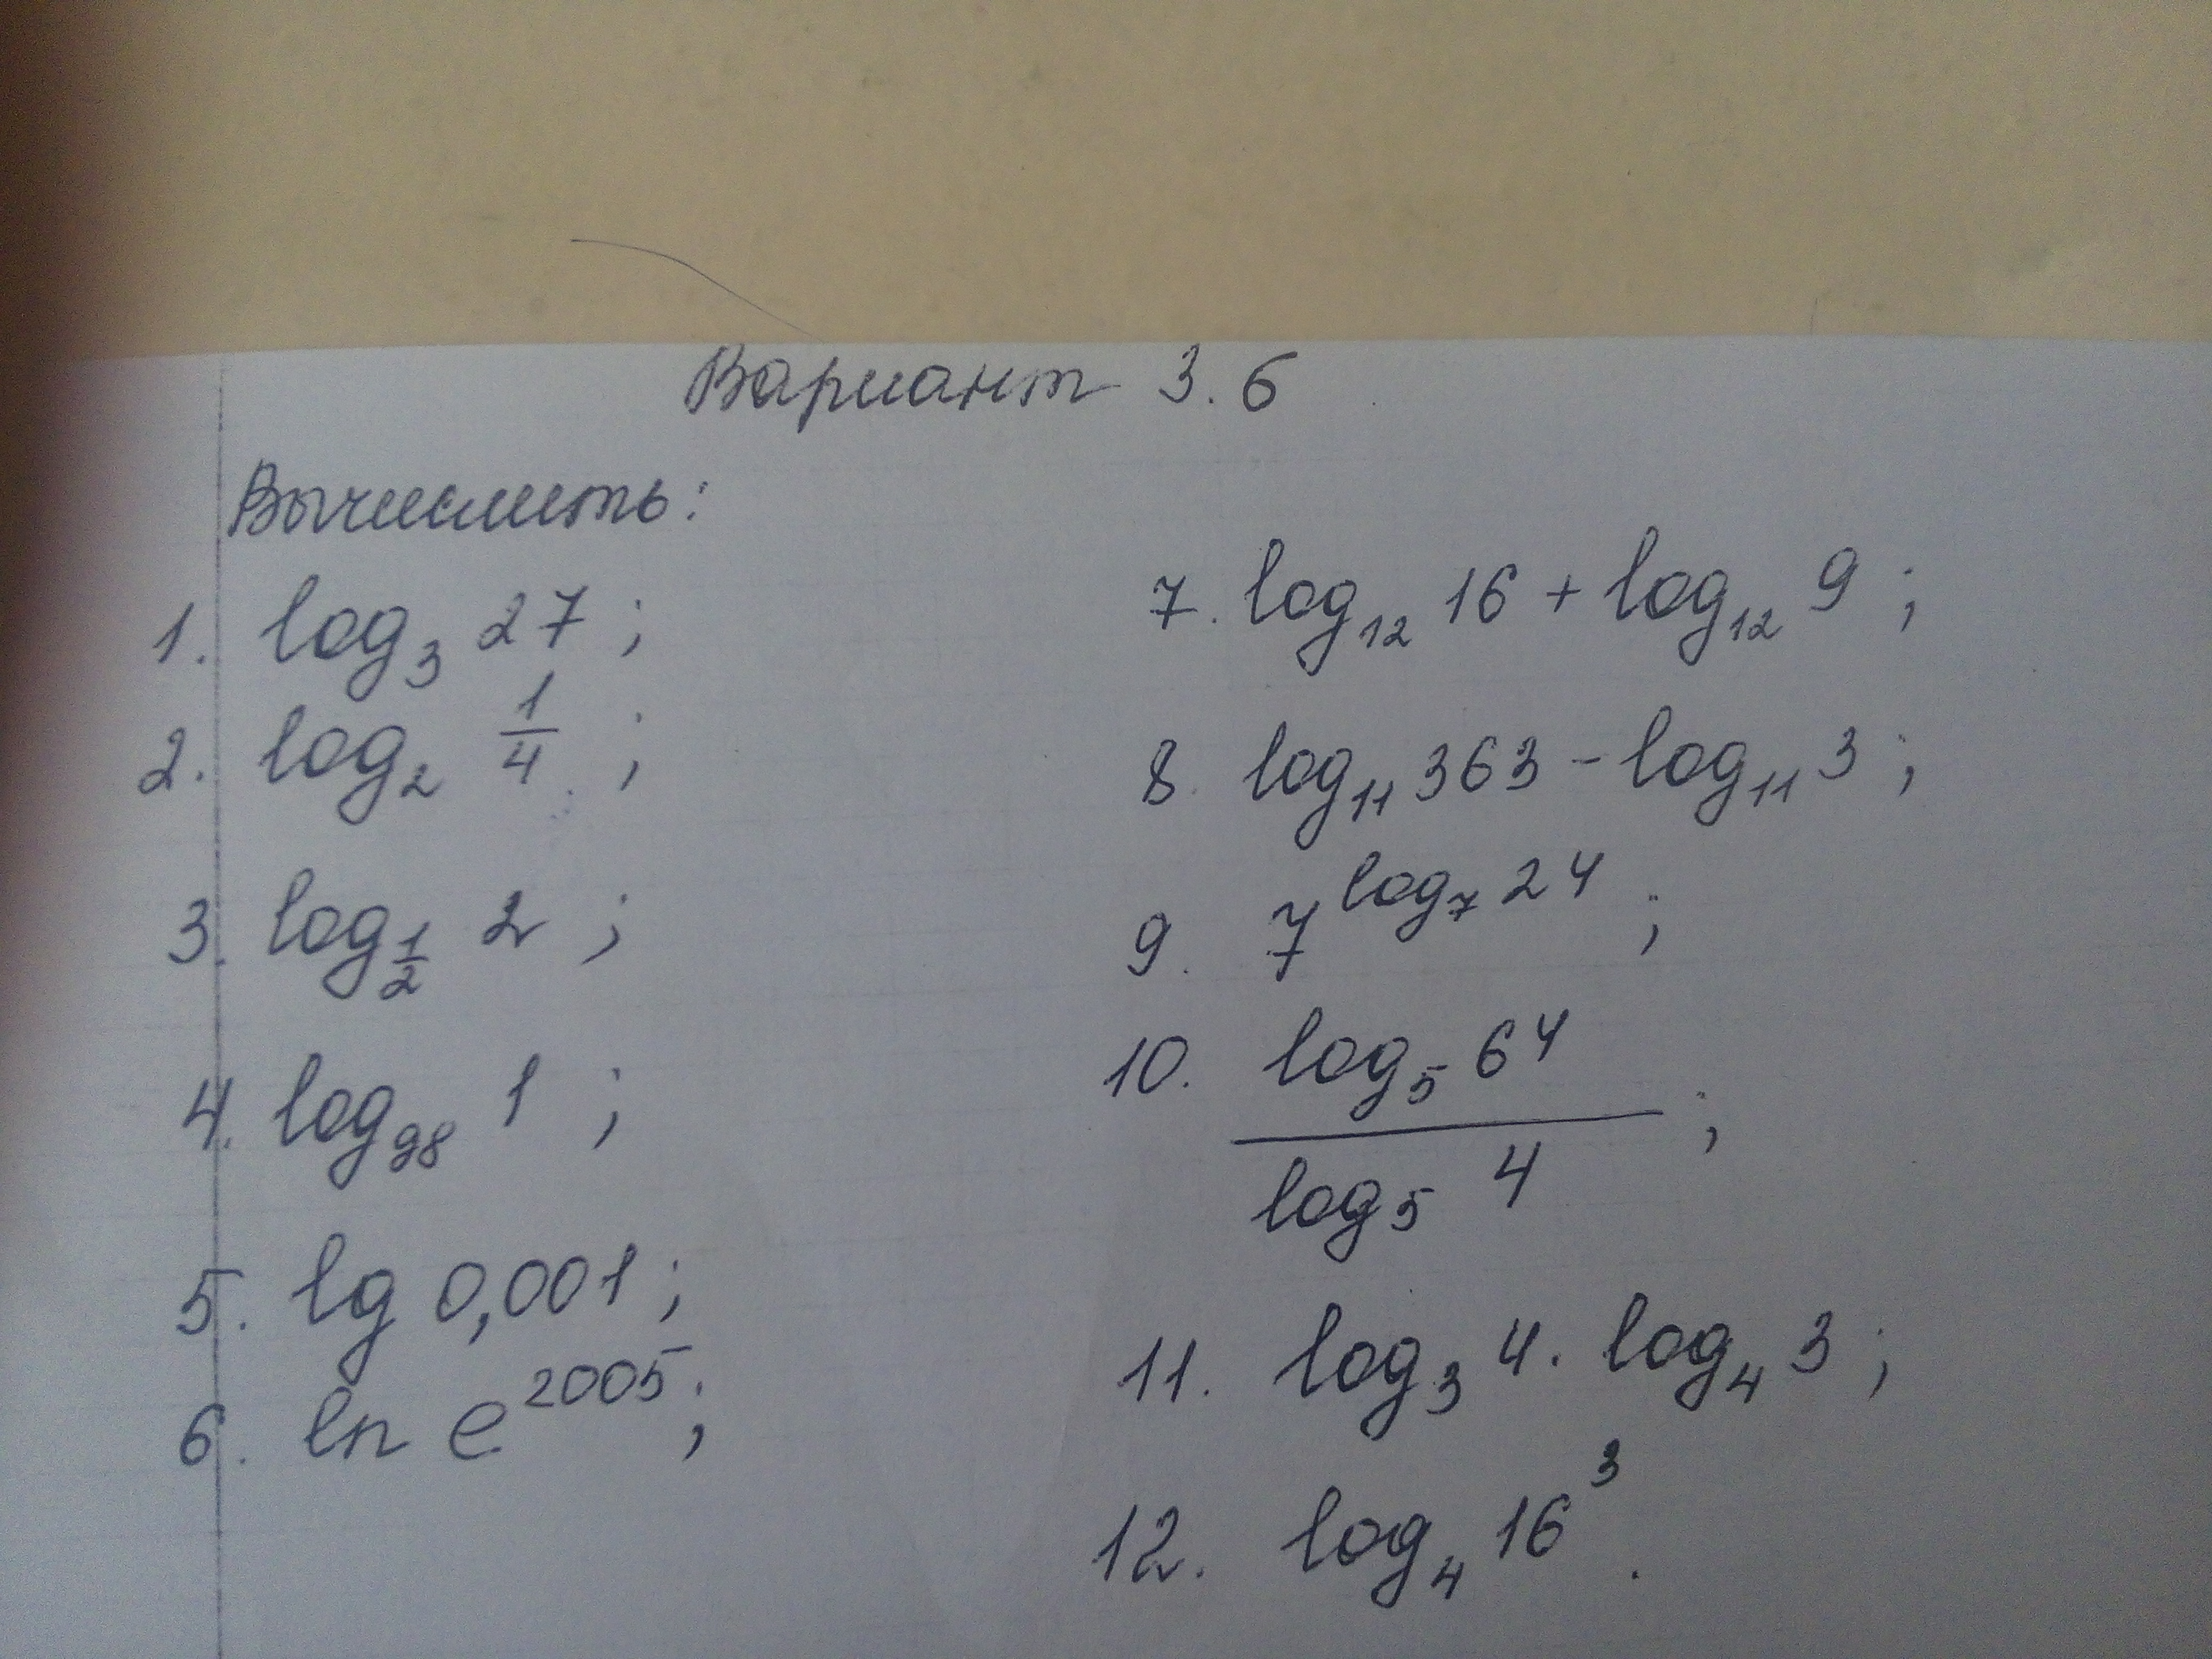 Вариант 3.6
Вычислить:
1. log₃ 27 ;
2. log₂ 1/4 ;
3. log_{1/2} 2 ;
4. log₉₈ 1 ;
5. lg 0,001 ;
6. ln e²⁰⁰⁵ ;
7. log₁₂ 16 + log₁₂ 9 ;
8. log₁₁ 363 - log₁₁ 3 ;
9. 7^{log₇ 24} ;
10. log₅ 64 / log₅ 4 ;
11. log₃ 4 · log₄ 3 ;
12. log₄ 16³ .